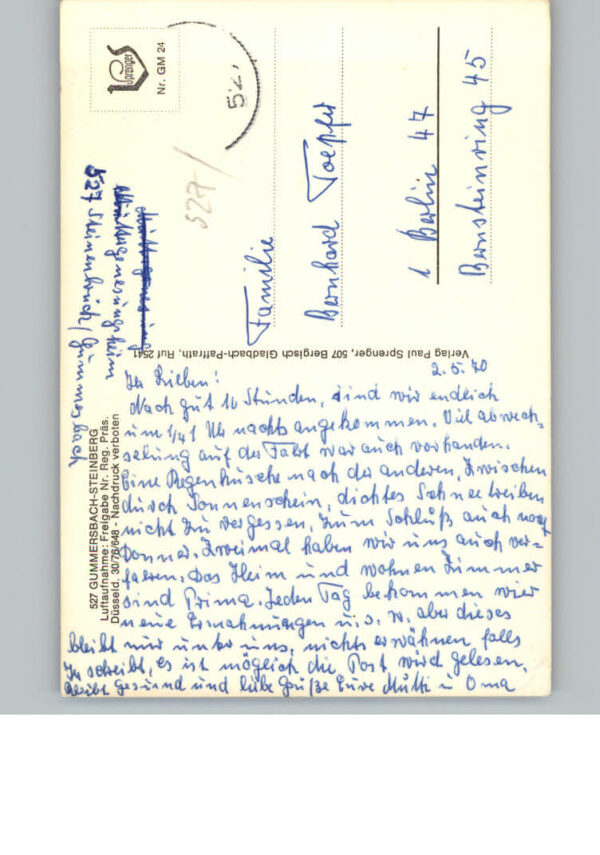 Sprenger
Nr. GM 24
52.
527/
Müttergenesungsheim
527 Steinenbrück/Gummersbach
Familie
Bernhard Toepfer
1 Berlin 47
Bernsteinring 45
Verlag Paul Sprenger, 507 Bergisch Gladbach-Paffrath, Ruf 2541
527 GUMMERSBACH-STEINBERG
Luftaufnahme: Freigabe Nr. Reg. Präs.
Düsseld. 30/76/648 - Nachdruck verboten
2.5.70
Ihr Lieben!
Nach gut 10 Stunden, sind wir endlich
um 1/41 Uhr nachts angekommen. Viel abwech-
selung auf der Fahrt war auch vorhanden.
Eine Regenhusche nach der anderen, zwischen
durch Sonnenschein, dichtes Schneetreiben
nicht zu vergessen, zum Schluß auch noch
Donner. Zweimal haben wir uns auch ver-
fahren. Das Heim und wohnen Zimmer
sind Prima. Jeden Tag bekommen wir
neue Ermahnungen u.s.w. aber dieses
bleibt nur unter uns, nichts erwähnen falls
Ihr schreibt, es ist möglich die Post wird gelesen.
Bleibt gesund und liebe Grüße Eure Mutti u Oma